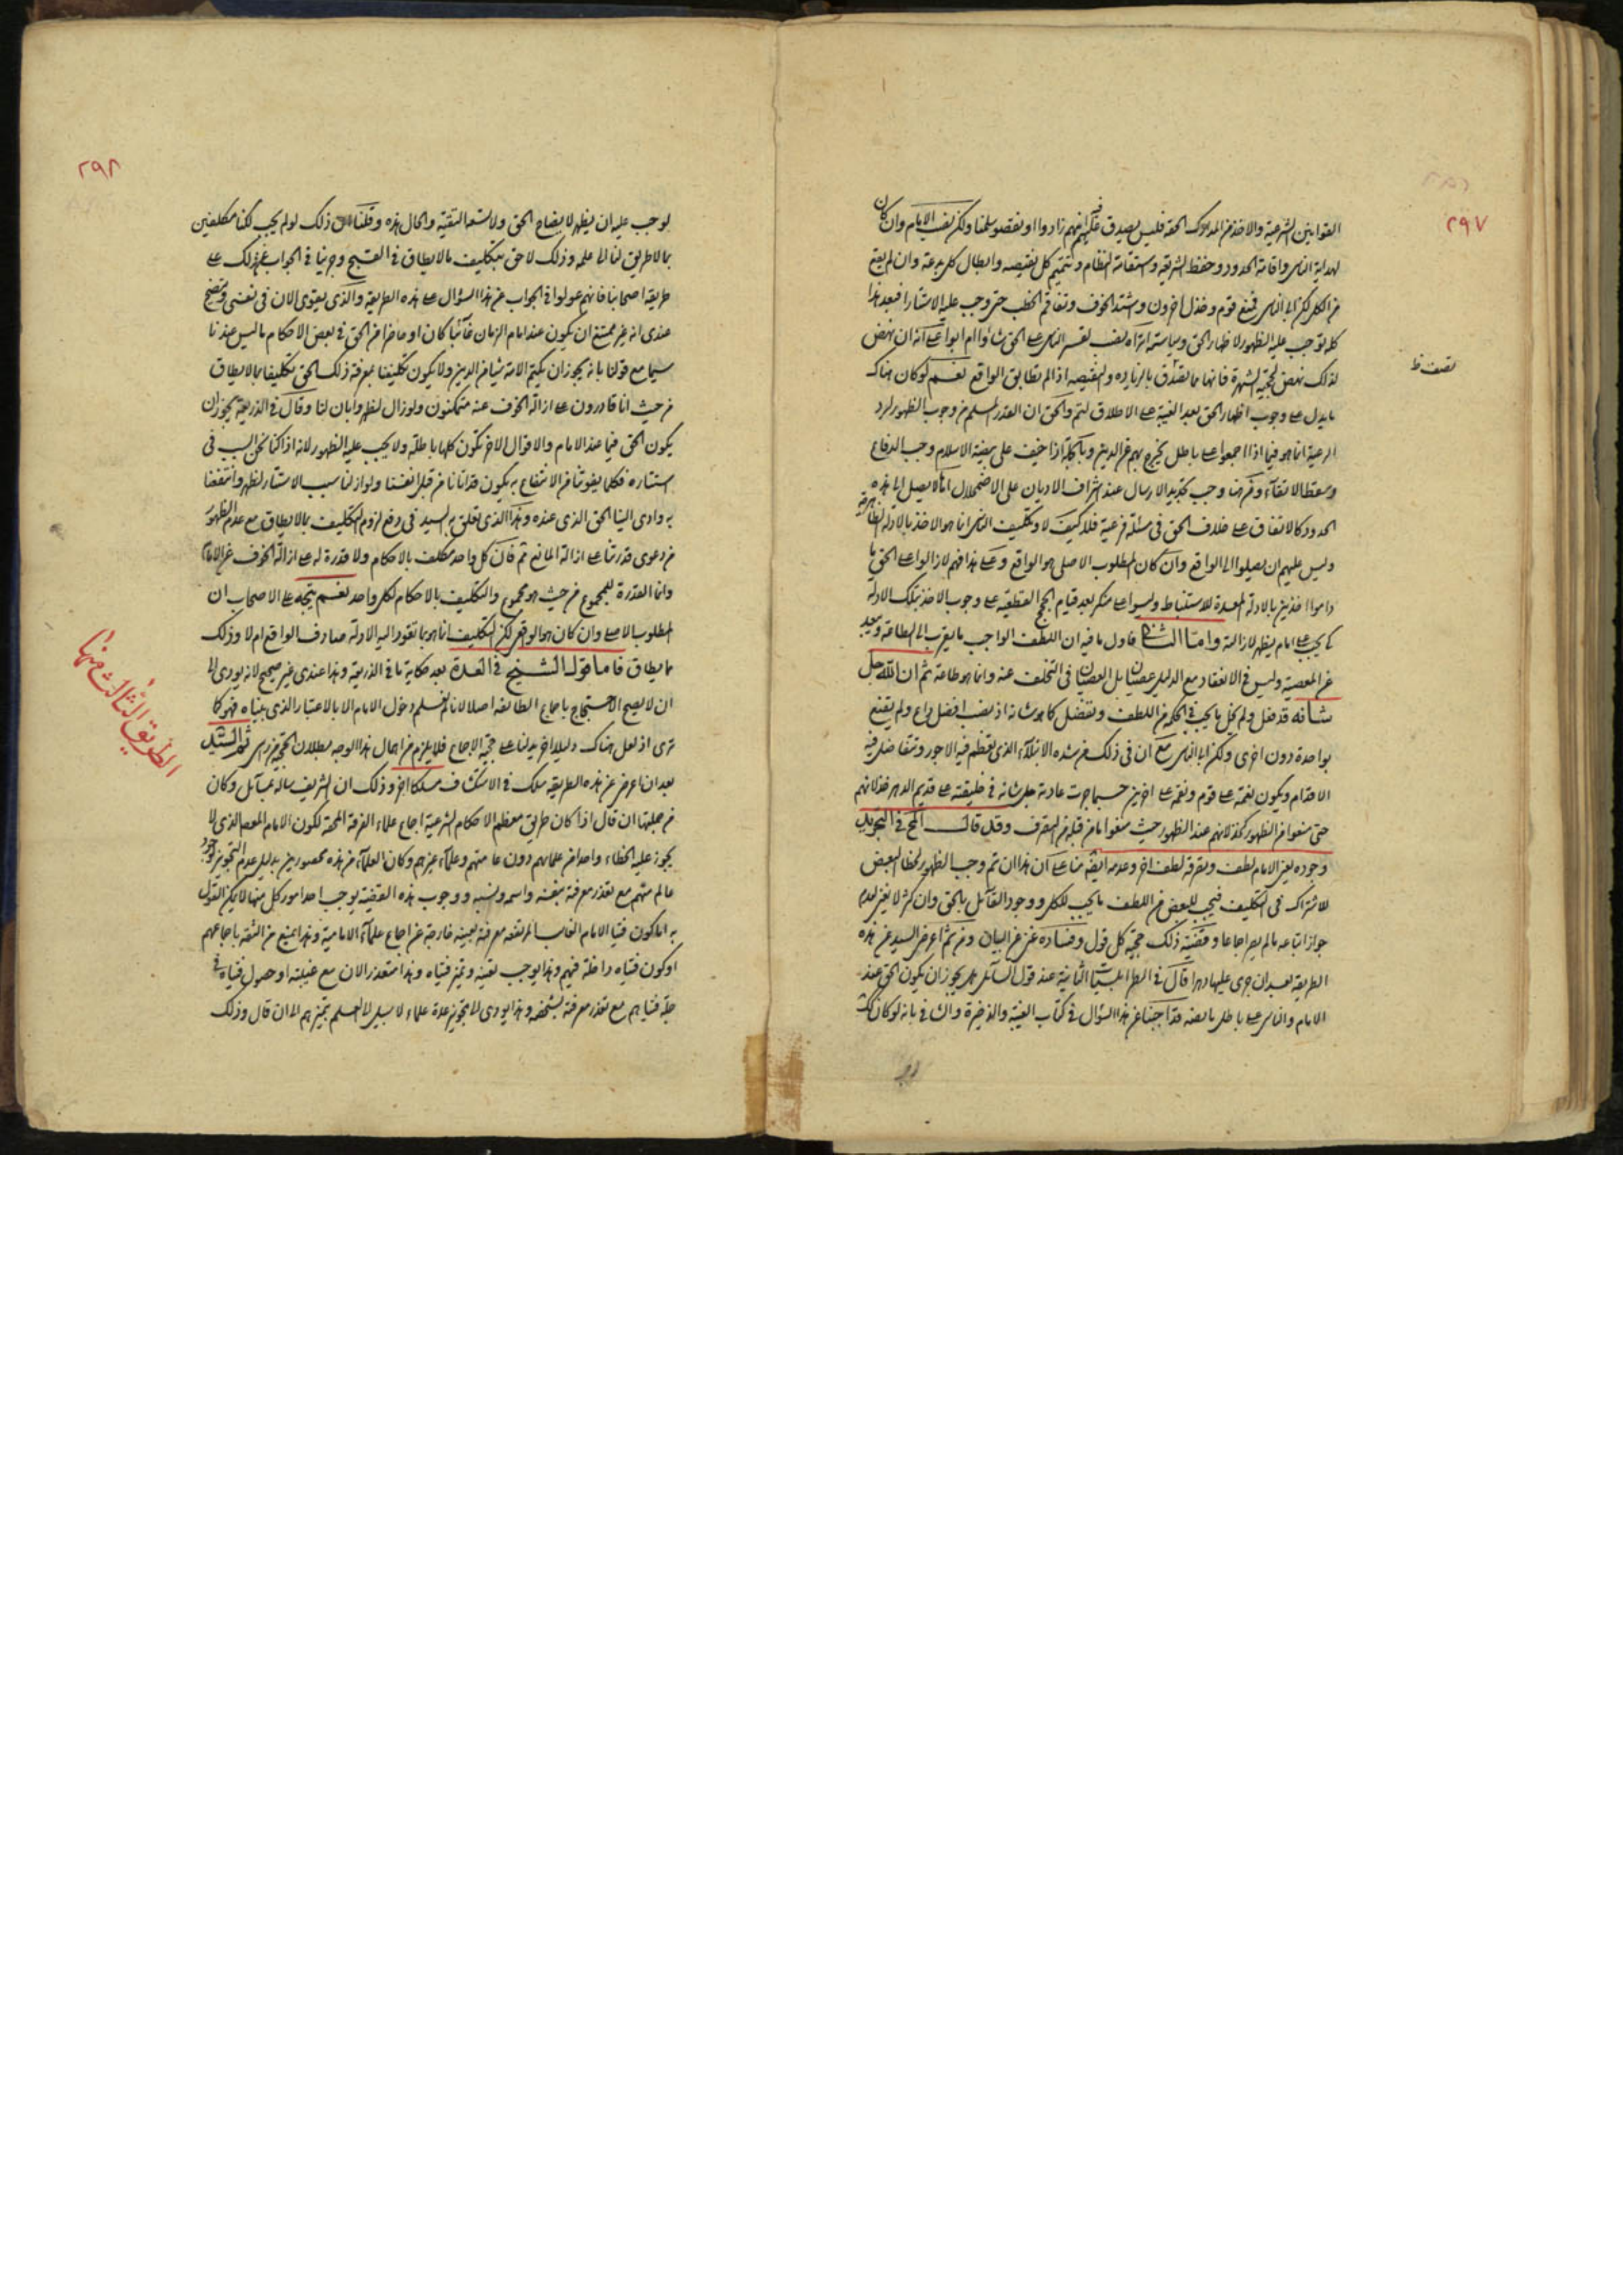 ٢٩٧
القوانين الشرعية والاخذ من المدارك الحقه فليس يصدق عليهم انهم زادوا او نقصوا سلمنا ولكن نصب الامام وان كان
لهداية الناس واقامة الحدود وحفظ الشريعة واستقامة النظام وتتميم كل نقيصه وابطال كل بدعة وان لم يقع
من الكل لكن ابا الناس فمنع قوم وخذل اخرون واشتد الخوف وتفاقم الخطب حتى وجب عليه الاستتار افبعد هذا
كله يوجب عليه الظهور لاظهار الحق وسياسته اتراه يصب لقسر الناس على الحق شاؤا ام ابوا على انه ان نهض
لذلك نهض لحجية الشهرة فانها مما يصدق بالزياده والنقيصه اذا لم تطابق الواقع نعم لو كان هناك
ما يدل على وجوب اظهار الحق بعد الغيبة على الاطلاق لتم والحق ان القدر المسلم من وجوب الظهور لرد
الرعية انما هو فيما اذا اجمعوا على باطل يخرج بهم عن الدين وبالجملة اذا خيف على بيضة الاسلام وجب الدفاع
وسقط الاتقاء ومن هنا وجب تجديد الارسال عند اشراف الاديان على الاضمحلال اما ما لا يصل الى هذه
الحدود كالاتفاق على خلاف الحق في مسئلة فرعية فلا كيف لا وتكليف الناس انما هو الاخذ بالادلة الظاهرية
وليس عليهم ان يصلوا الى الواقع وان كان المطلوب الاصلي هو الواقع وعلى هذا فهم لازالوا على الحق ما
داموا اخذين بالادلة المعدة للاستنباط وليسوا على منكر بعد قيام الحجج القطعية على وجوب الاخذ بتلك الادلة
كي يجب على امام يظهر لازالته واما الثاني فاول ما فيه ان اللطف الواجب ما يقرب الى الطاعة ويبعد
عن المعصية وليس في الانعقاد مع الدليل عصيان بل العصيان في التخلف عنه وانما هو طاعة ثم ان الله جل
شانه قد فعل ولم يخل بما يجب في الحكم من اللطف وتفضل كما هو شانه اذ نصب افضل داع ولم يقنع
بواحدة دون اخرى ولكن ابا الناس مع ان في ذلك من شده الابتلاء الذي تعظم فيه الاجور وتتفاضل فيه
الاقدام ويكون نعمة على قوم ونقمة على اخرين حسبما جرت عادته جل شانه في خليقته على قديم الدهر خذلانهم
حتى منعوا من الظهور كخذلانهم عند الظهور حيث منعوا من قبله من التصرف وقد قال المحقق في التجريد
وجوده يعني الامام لطف وتصرفه لطف اخر وعدمه ايضه منا على ان هذا ان تم وجب الظهور لخطا البعض
للاشتراك في التكليف فيجب للبعض من اللطف ما يجب للكل ووجود القائل بالحق وان كثر لا يغني لعدم
جواز اتباعه ما لم يصر اجماعا وقضية ذلك حجية كل قول وفساده غني عن البيان ومن ثم اعرض السيد عن هذه
الطريقة بعد ان جرى عليها دهرا قال في الطرابلسيات الثانية عند قول السائل هل يجوز ان يكون الحق عند
الامام والناس على باطل ما لفظه قد اجبنا عن هذا السؤال في كتاب الغيبة والذخيرة والشافي بانه لو كان كذلك
٢٩٨
لوجب عليه ان يظهر لايضاح الحق ولا تسعه التقيه والحال هذه وقلنا ان ذلك لو لم يجب لكنا مكلفين
بما لا طريق لنا الى علمه وذلك لاحق بتكليف ما لا يطاق في القبح وجرينا في الجواب عن ذلك على
طريقة اصحابنا فانهم عولوا في الجواب عن هذا السؤال على هذه الطريقة والذي يقوى الان في نفسي ويتضح
عندي انه غير ممتنع ان يكون عند امام الزمان غائبا كان او حاضرا من الحق في بعض الاحكام ما ليس عندنا
سيما مع قولنا بانه يجوز ان يكتم الامة شيئا من الدين ولا يكون تكليفنا بمعرفة ذلك الحق تكليفا بما لا يطاق
من حيث انا قادرون على ازالة الخوف عنه متمكنون ولو زال لظهر وابان لنا وقال في الذريعة يجوز ان
يكون الحق فيما عند الامام والاقوال الاخر تكون كلها باطلة ولا يجب عليه الظهور لانه اذا كنا نحن السبب في
استتاره فكلما يفوتنا من الانتفاع به يكون قد اتانا من قبل انفسنا ولو ازلنا سبب الاستتار لظهر وانتفعنا
به وادى الينا الحق الذي عنده وهذا الذي تعلق به السيد في رفع لزوم التكليف بما لا يطاق مع عدم الظهور
من دعوى قدرتنا على ازالة المانع تم فان كل واحد مكلف بالاحكام ولا قدرة له على ازالة الخوف عن الامام
وانما القدرة للمجموع من حيث هو مجموع والتكليف بالاحكام لكل واحد نعم يتجه على الاصحاب ان
المطلوب الاصلي وان كان هو الواقع لكن التكليف انما هو بما تقود اليه الادلة صادف الواقع ام لا وذلك
مما يطاق فاما قول الشيخ في العدة بعد حكاية ما في الذريعة وهذا عندي غير صحيح لانه يودى الى
ان لا يصح الاحتجاج باجماع الطائفة اصلا لانا لا نعلم دخول الامام الا بالاعتبار الذي بيناه فهو كما
ترى اذ لعل هناك دليلا اخر يدلنا على حجية الاجماع فلا يلزم من اهمال هذا الوجه بطلان الحجية من راس ثم السيد
بعد ان اعرض عن هذه الطريقه سلك في الاستكشاف مسلكا اخر وذلك ان الشريف ساله بمسائل وكان
من جملتها ان قال اذا كان طريق معظم الاحكام الشرعية اجماع علماء الفرقة المحقة لكون الامام المعصوم الذي لا
يجوز عليه الخطاء واحدا من علمائهم دون عامتهم وعلماء غيرهم وكان العلماء من هذه محصورين بدليل عدم التجويز لوجود
عالم منهم مع تعذر معرفة بنفسه واسمه ونسبه ووجوب هذه القضية يوجب احد امور كل منها لا يمكن القول
به اما كون فتيا الامام الغائب المرتفعة معرفة بعينه خارجة عن اجماع علماء الامامية وهذا يمنع من الثقة باجماعهم
او كون فتياه داخلة فيهم وهذا يوجب تعيينه وتميز فتياه وهذا متعذر الان مع غيبته او حصول فتياه في
جملة فتياهم مع تعذر معرفة بشخصه وهذا يودى الى تجويز عدة علماء لا سبيل الى العلم بتميزهم الى ان قال وذلك
الطريق الثالث منها